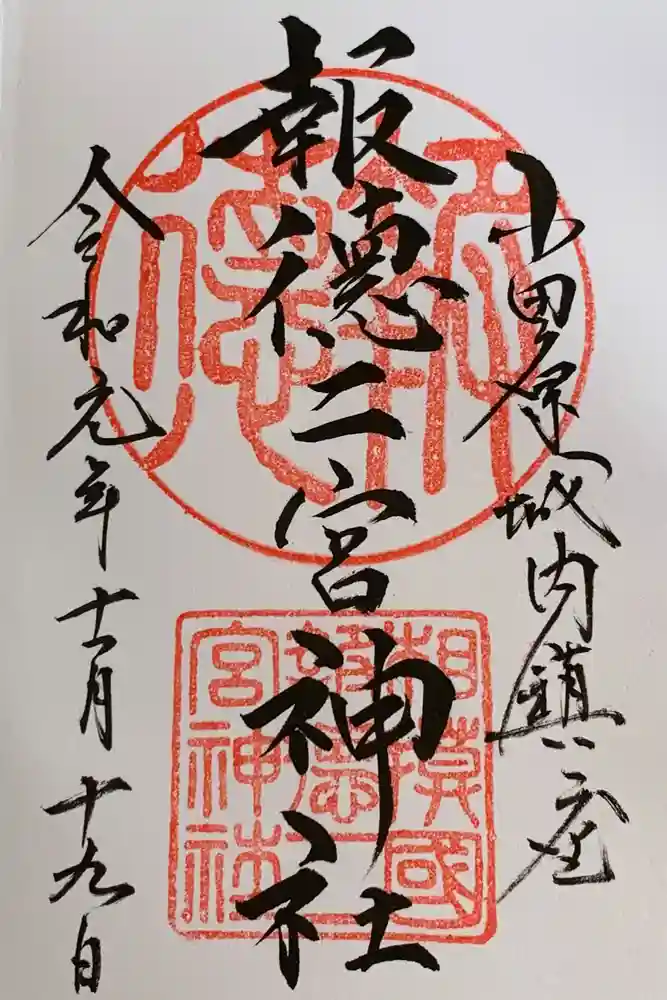 小田原城内鎮座
報徳二宮神社
令和元年十一月十九日
相模國
報徳二
宮神社